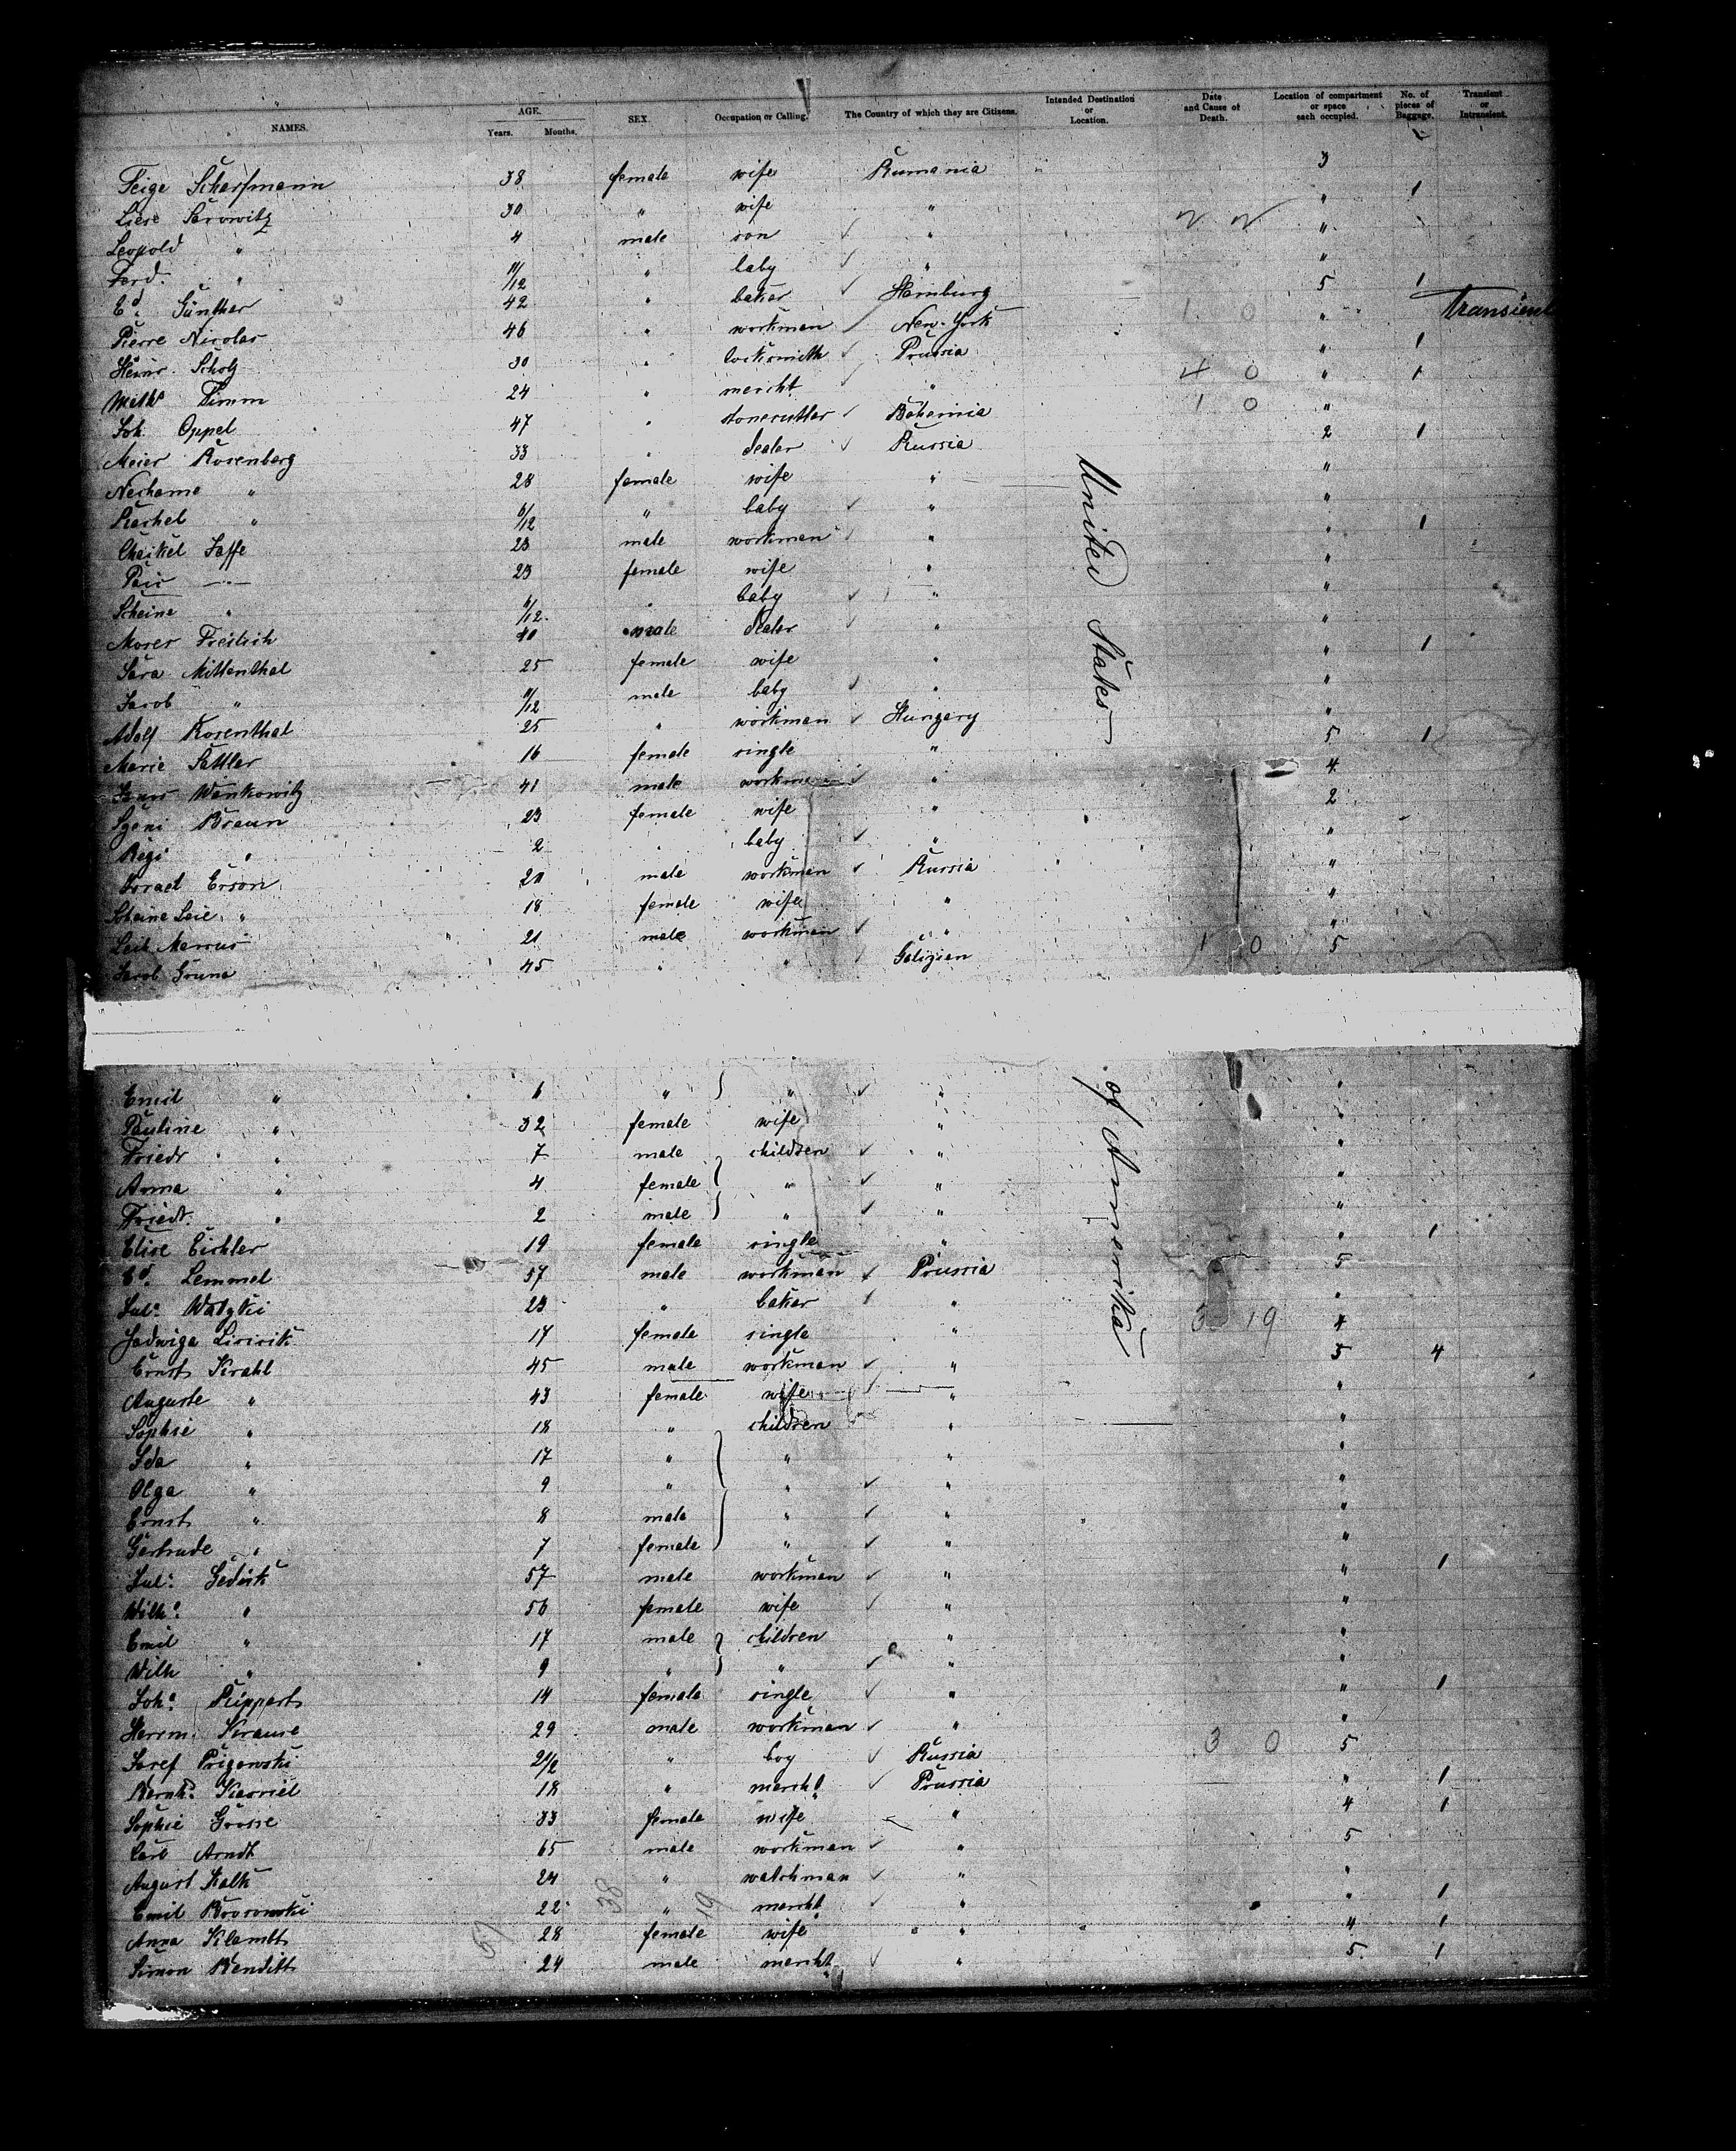 NAMES. AGE. Years. Months. SEX. Occupation or Calling. The Country of which they are Citizens. Intended Destination or Location. Date and Cause of Death. Location of compartment or space each occupied. No. of pieces of Baggage. Transient or Intransient.
Feige Scharfmann 38 female wife Rumania 3
Liese Sarowitz 30 " wife " " 1
Leopold " 4 male son " "
Ferd. " 11/12 " baby " "
Ed. Günther 42 " baker Hamburg 5 1
Pierre Nicolas 46 " workman New-York 1 0 " Transient
Heinr. Scholz 30 " locksmith Prussia " 1
Timm 24 " mercht. " 4 0 " 1
Joh. Oppel 47 " stonecutter Bohemia 1 0 "
Meier Rosenberg 33 " dealer Russia 2 1
Nechame " 28 female wife " "
Rachel " 6/12 " baby " "
Chaikel Jaffe 23 male workman " " 1
23 female wife " "
Scheine " 6/12 " baby " "
Moses Freilich 40 male dealer " "
Sara Mittenthal 25 female wife " " 1
Jacob " 11/12 male baby " "
Adolf Rosenthal 25 " workman Hungary "
Marie Sattler 16 female single " 5 1
Wankowitz 41 male workman " 4
Braun 23 female wife " 2
Regi " 2 " baby " "
Israel Erson 20 male workman Russia "
Scheine Leie " 18 female wife " "
Leib Marcus 21 male workman " "
Jacob Gruna 45 " " Galizien 1 0 5
United States of Amerika
Emil " 6 " " " "
Pauline " 32 female wife " "
Friedr " 7 male children " "
Anna " 4 female " " "
Friedr. " 2 male " " "
Elise Eichler 19 female single " " 1
Ed. Lemmel 57 male workman Prussia 5
Jul. 23 " baker " "
Jadwiga 17 female single " 3 19 4
Ernst Krahl 45 male workman " 5 4
Auguste " 43 female wife " "
Sophie " 18 " children " "
Ida " 17 " " " "
Olga " 9 " " " "
Ernst " 8 male " " "
Gertrude " 7 female " " "
Jul. Gedick 57 male workman " " 1
Wilh. " 56 female wife " "
Emil " 17 male children " "
Wilh " 9 " " " "
Joh. Rippert 14 female single " " 1
Herrm. Krause 29 male workman " "
Josef Prigewski 21/2 " boy Russia 3 0 5
Bernh. 18 " mercht. Prussia " 1
Sophie Grosse 33 female wife " 4 1
Carl Arndt 65 male workman " 5
August Kalk 24 " watchman " "
Emil Borowski 22 " mercht. " " 1
Anna Klambt 28 female wife " 4 1
Simon Benditt 24 male mercht. " 5 1
57 38 19